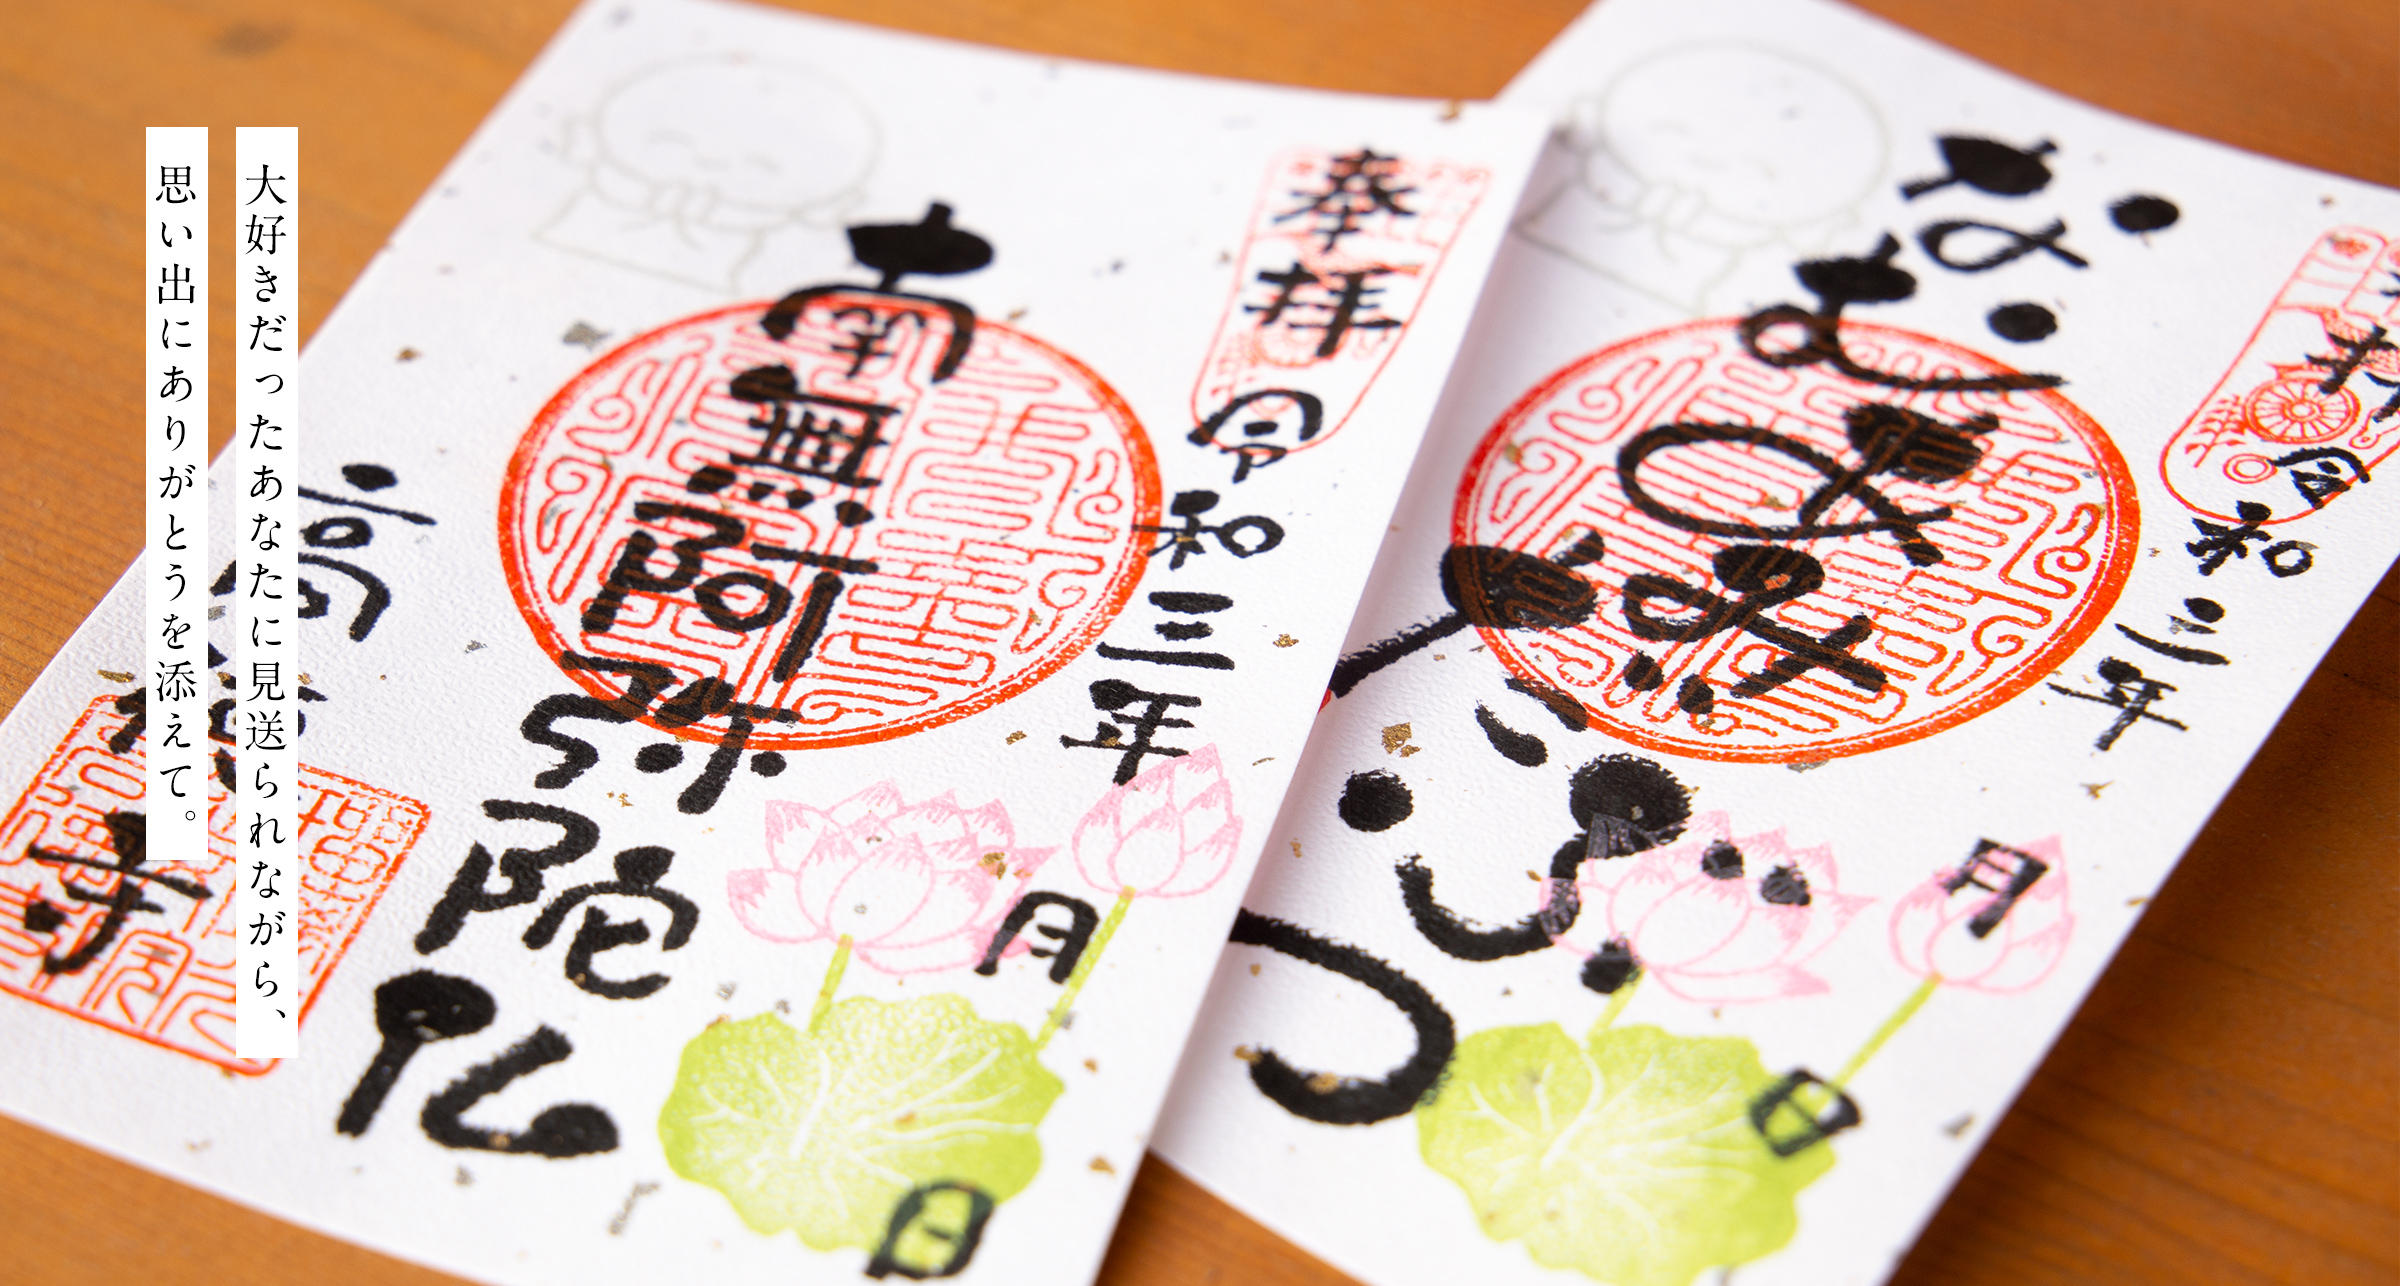 大好きだったあなたに見送られながら、
思い出にありがとうを添えて。
奉拝
令和三年
月
日
南無阿弥陀仏
高徳寺
令和三年
月
日
なむあみだぶつ